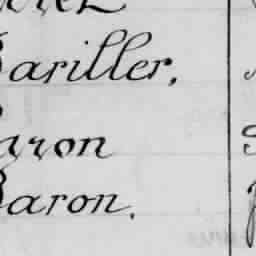 Bariller,
Baron
Baron.